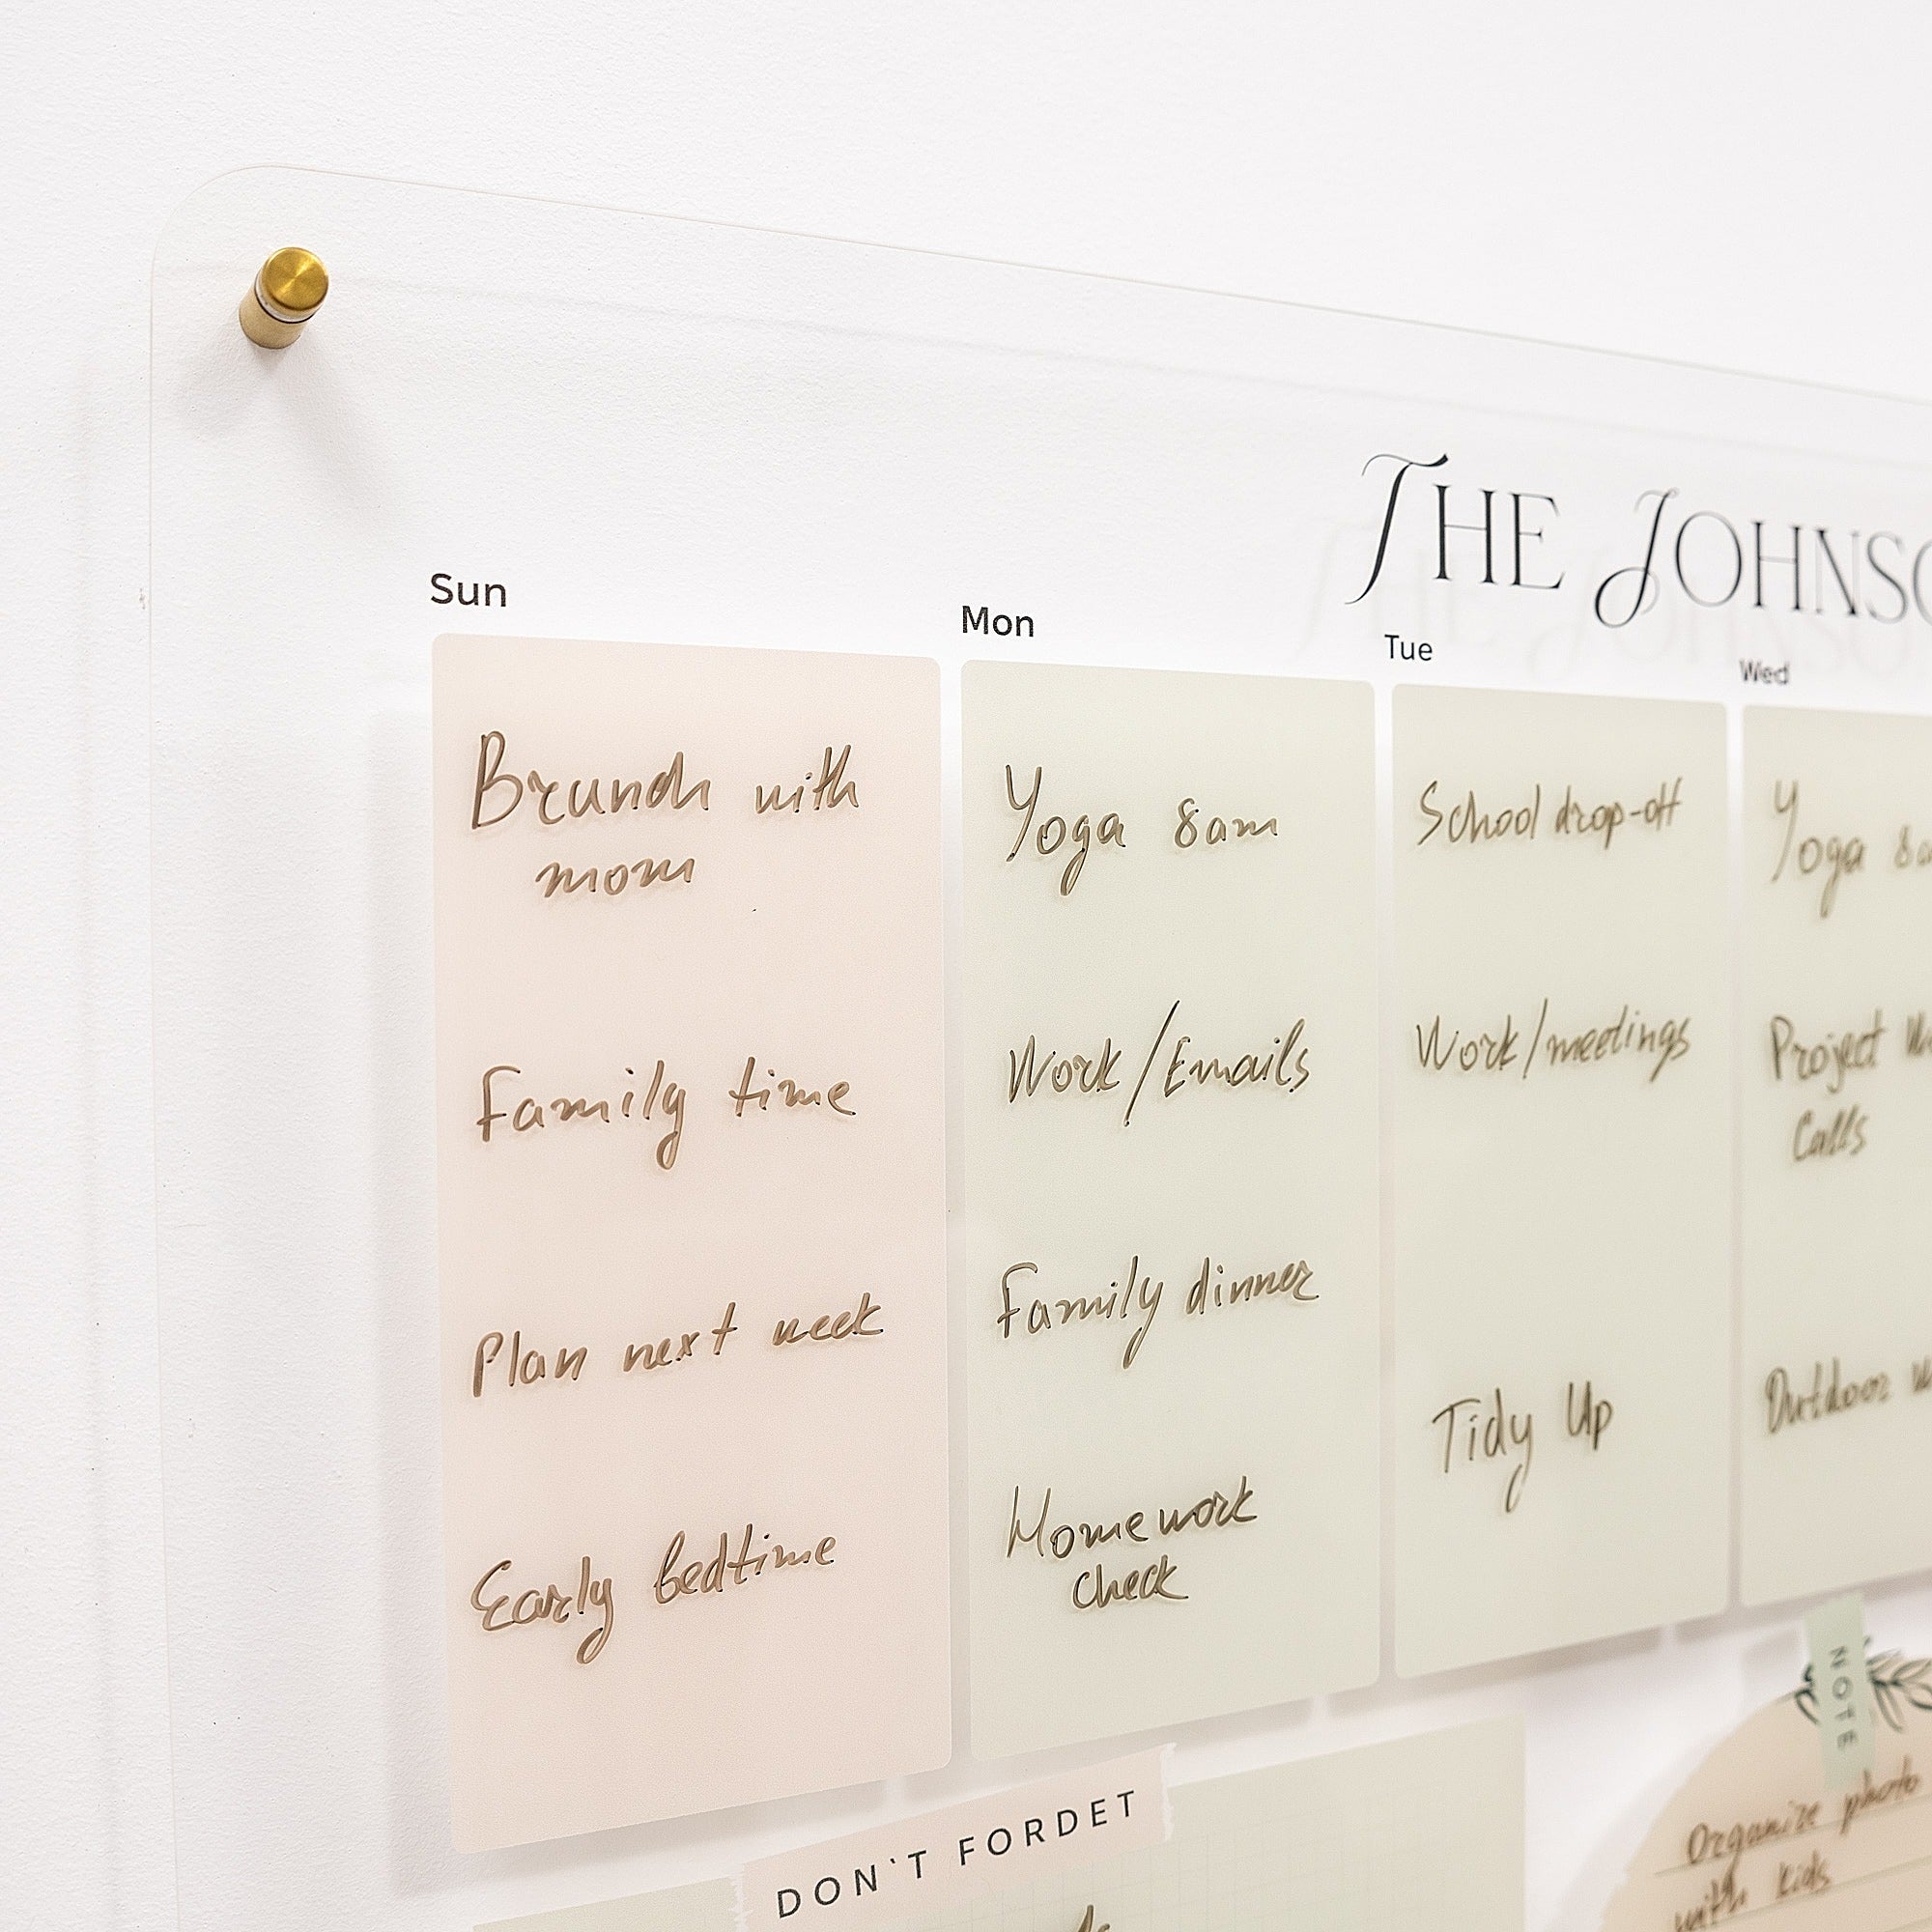 THE JOHNSO
Sun
Brunch with
mom
Family time
Plan next week
Early bedtime
Mon
Yoga 8am
Work/Emails
Family dinner
Homework
check
Tue
School drop-off
Work/meetings
Tidy Up
Wed
Yoga 8a
Project
Calls
Outdoor
DON'T FORDET
NOTE
Organize photo
with kids